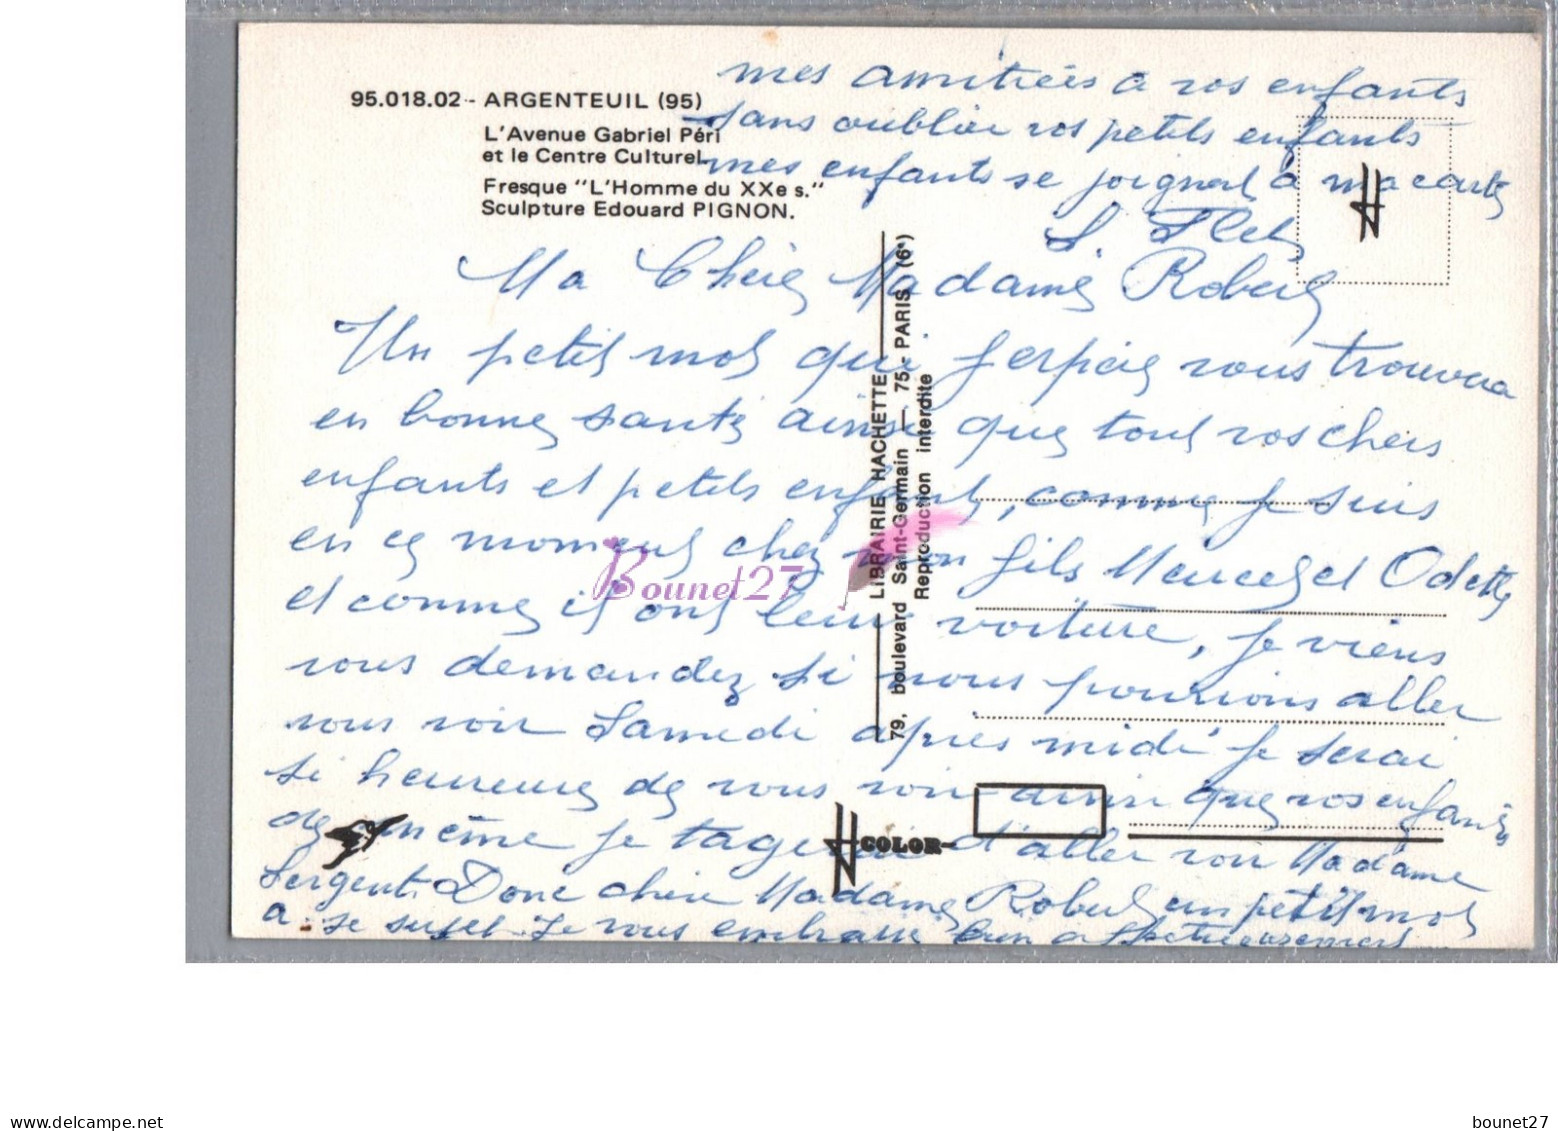 95.018.02 - ARGENTEUIL (95)
L'Avenue Gabriel Péri
et le Centre Culturel.
Fresque "L'Homme du XXe s."
Sculpture Edouard PIGNON.
mes amitiées à vos enfants
sans oublier vos petits enfants
mes enfants se joignent à ma carte
Ma Chère Madame Robert
Un petit mot qui j'espère vous trouvera
en bonne santé ainsi que tout vos chers
enfants et petits enfants, comme je suis
en ce moment chez mon fils Marcel et Odette
et comme ils ont leur voiture, je viens
vous demandez si nous pourrions aller
vous voir Samedi après midi je serai
si heureuse de vous voir ainsi que vos enfants
de même je d'aller voir Madame
Sergent. Donc chère Madame Robert un petit mot
à se sujet. Je vous embrasse bien affectueusement
LIBRAIRIE HACHETTE
79, boulevard Saint-Germain — 75 - PARIS (6e)
Reproduction interdite
COLOR
Bounet27
www.delcampe.net
bounet27